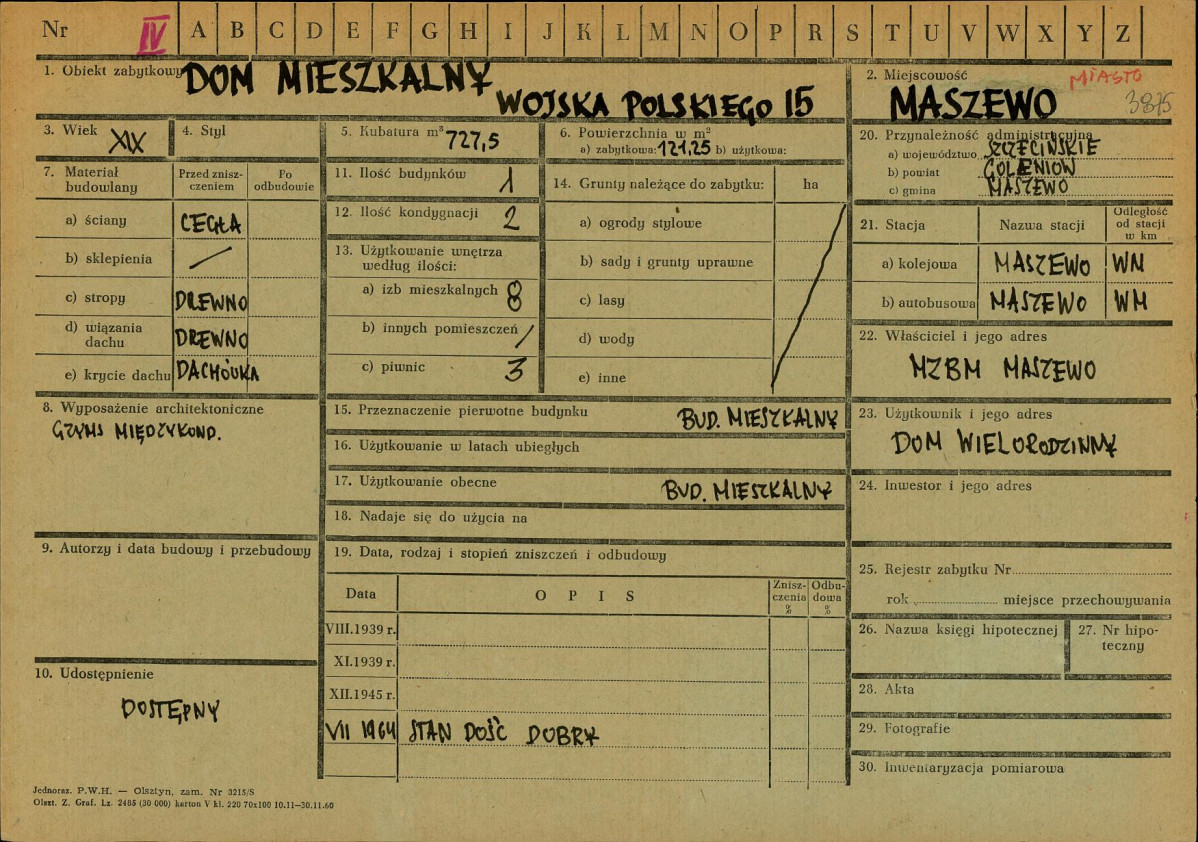 Nr IV A B C D E F G H I J K L M N O P R S T U V W X Y Z
1. Obiekt zabytkowy DOM MIESZKALNY
WOJSKA POLSKIEGO 15
2. Miejscowość MIASTO
MASZEWO 3875
3. Wiek XIX
4. Styl
5. Kubatura m³ 727,5
6. Powierzchnia w m²
a) zabytkowa: 121,25 b) użytkowa:
7. Materiał budowlany
Przed zniszczeniem
Po odbudowie
a) ściany CEGŁA
b) sklepienia /
c) stropy DREWNO
d) wiązania dachu DREWNO
e) krycie dachu DACHÓWKA
8. Wyposażenie architektoniczne
GZYMS MIĘDZYKOND.
9. Autorzy i data budowy i przebudowy
10. Udostępnienie
DOSTĘPNY
11. Ilość budynków 1
12. Ilość kondygnacji 2
13. Użytkowanie wnętrza
według ilości:
a) izb mieszkalnych 8
b) innych pomieszczeń /
c) piwnic 3
14. Grunty należące do zabytku: ha
a) ogrody stylowe
b) sady i grunty uprawne
c) lasy
d) wody
e) inne
15. Przeznaczenie pierwotne budynku BUD. MIESZKALNY
16. Użytkowanie w latach ubiegłych
17. Użytkowanie obecne BUD. MIESZKALNY
18. Nadaje się do użycia na
19. Data, rodzaj i stopień zniszczeń i odbudowy
Data OPIS Zniszczenia % Odbudowa %
VIII.1939 r.
XI.1939 r.
XII.1945 r.
VII 1964 STAN DOŚĆ DOBRY
20. Przynależność administracyjna
a) województwo SZCZECIŃSKIE
b) powiat GOLENIÓW
c) gmina MASZEWO
21. Stacja Nazwa stacji Odległość od stacji w km
a) kolejowa MASZEWO WM
b) autobusowa MASZEWO WM
22. Właściciel i jego adres
MZBM MASZEWO
23. Użytkownik i jego adres
DOM WIELORODZINNY
24. Inwestor i jego adres
25. Rejestr zabytku Nr
rok miejsce przechowywania
26. Nazwa księgi hipotecznej
27. Nr hipoteczny
28. Akta
29. Fotografie
30. Inwentaryzacja pomiarowa
Jednoraz. P.W.H. — Olsztyn, zam. Nr 3215/S
Olszt. Z. Graf. Lz. 2485 (30 000) karton V kl. 220 70x100 10.11—30.11.60